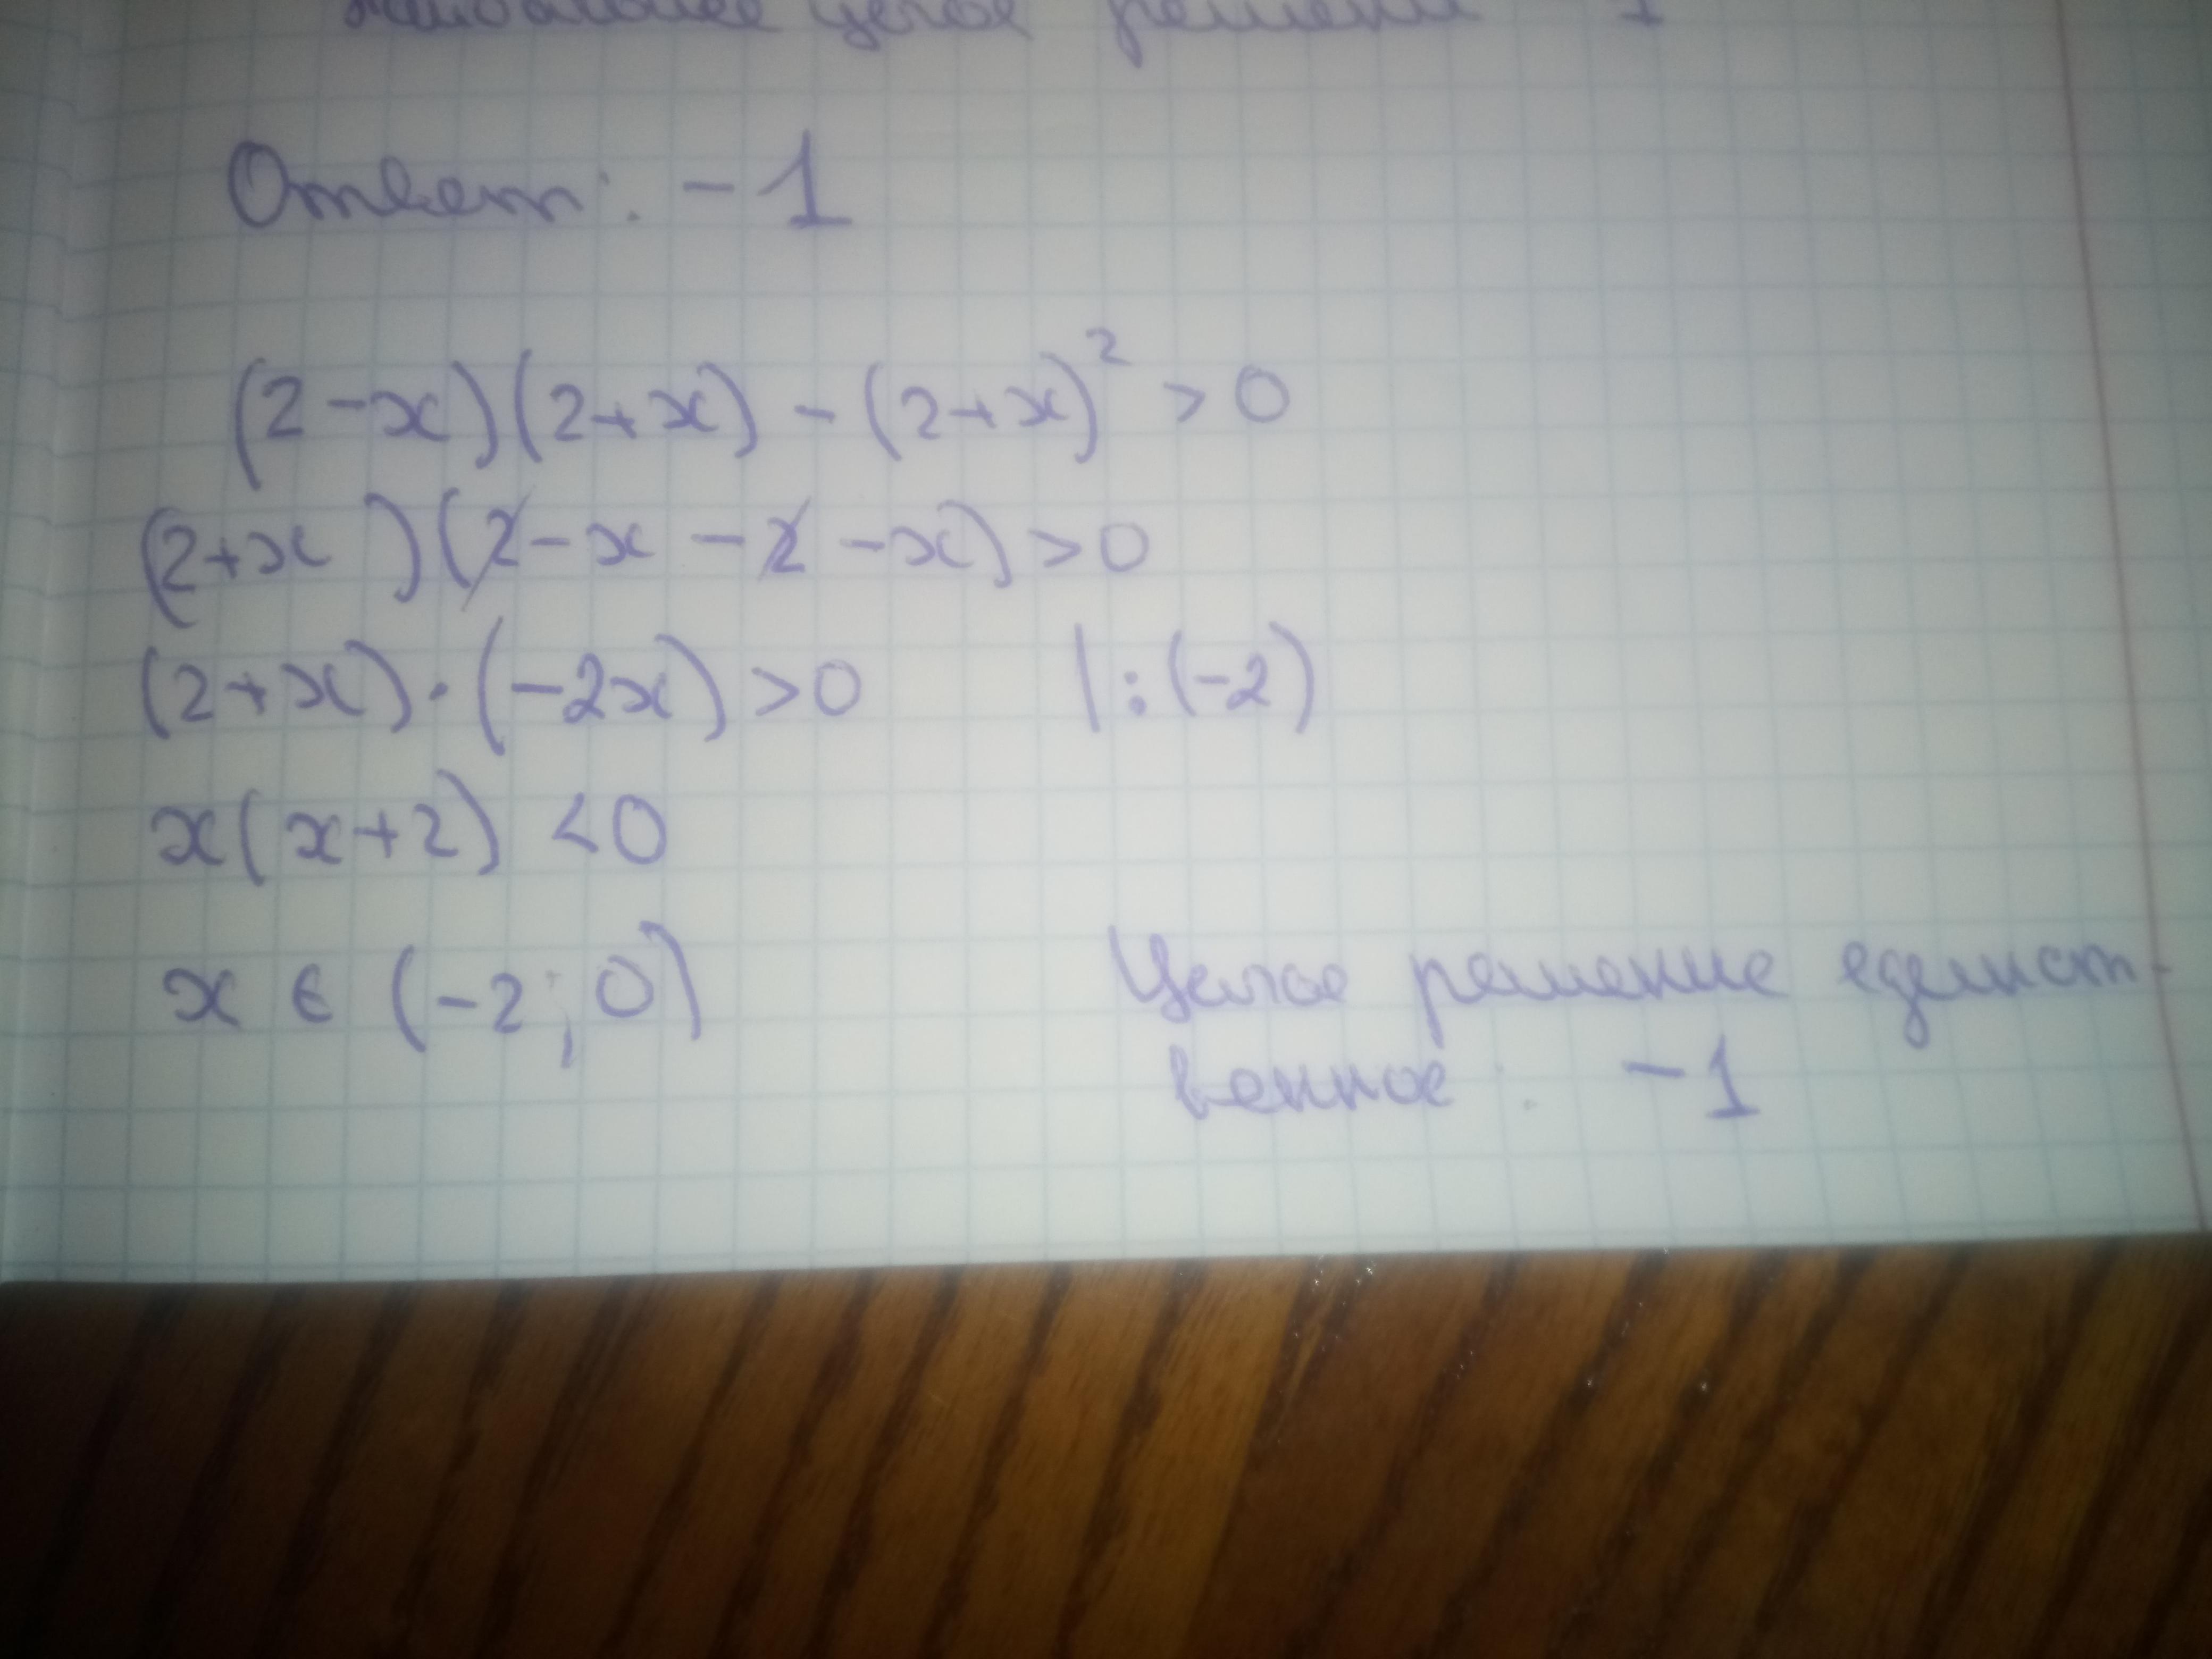 целое решение
Ответ: -1
(2-x)(2+x) - (2+x)² > 0
(2+x)(2-x-2-x) > 0
(2+x)·(-2x) > 0 |:(-2)
x(x+2) < 0
x ∈ (-2; 0) Целое решение единст-
венное: -1